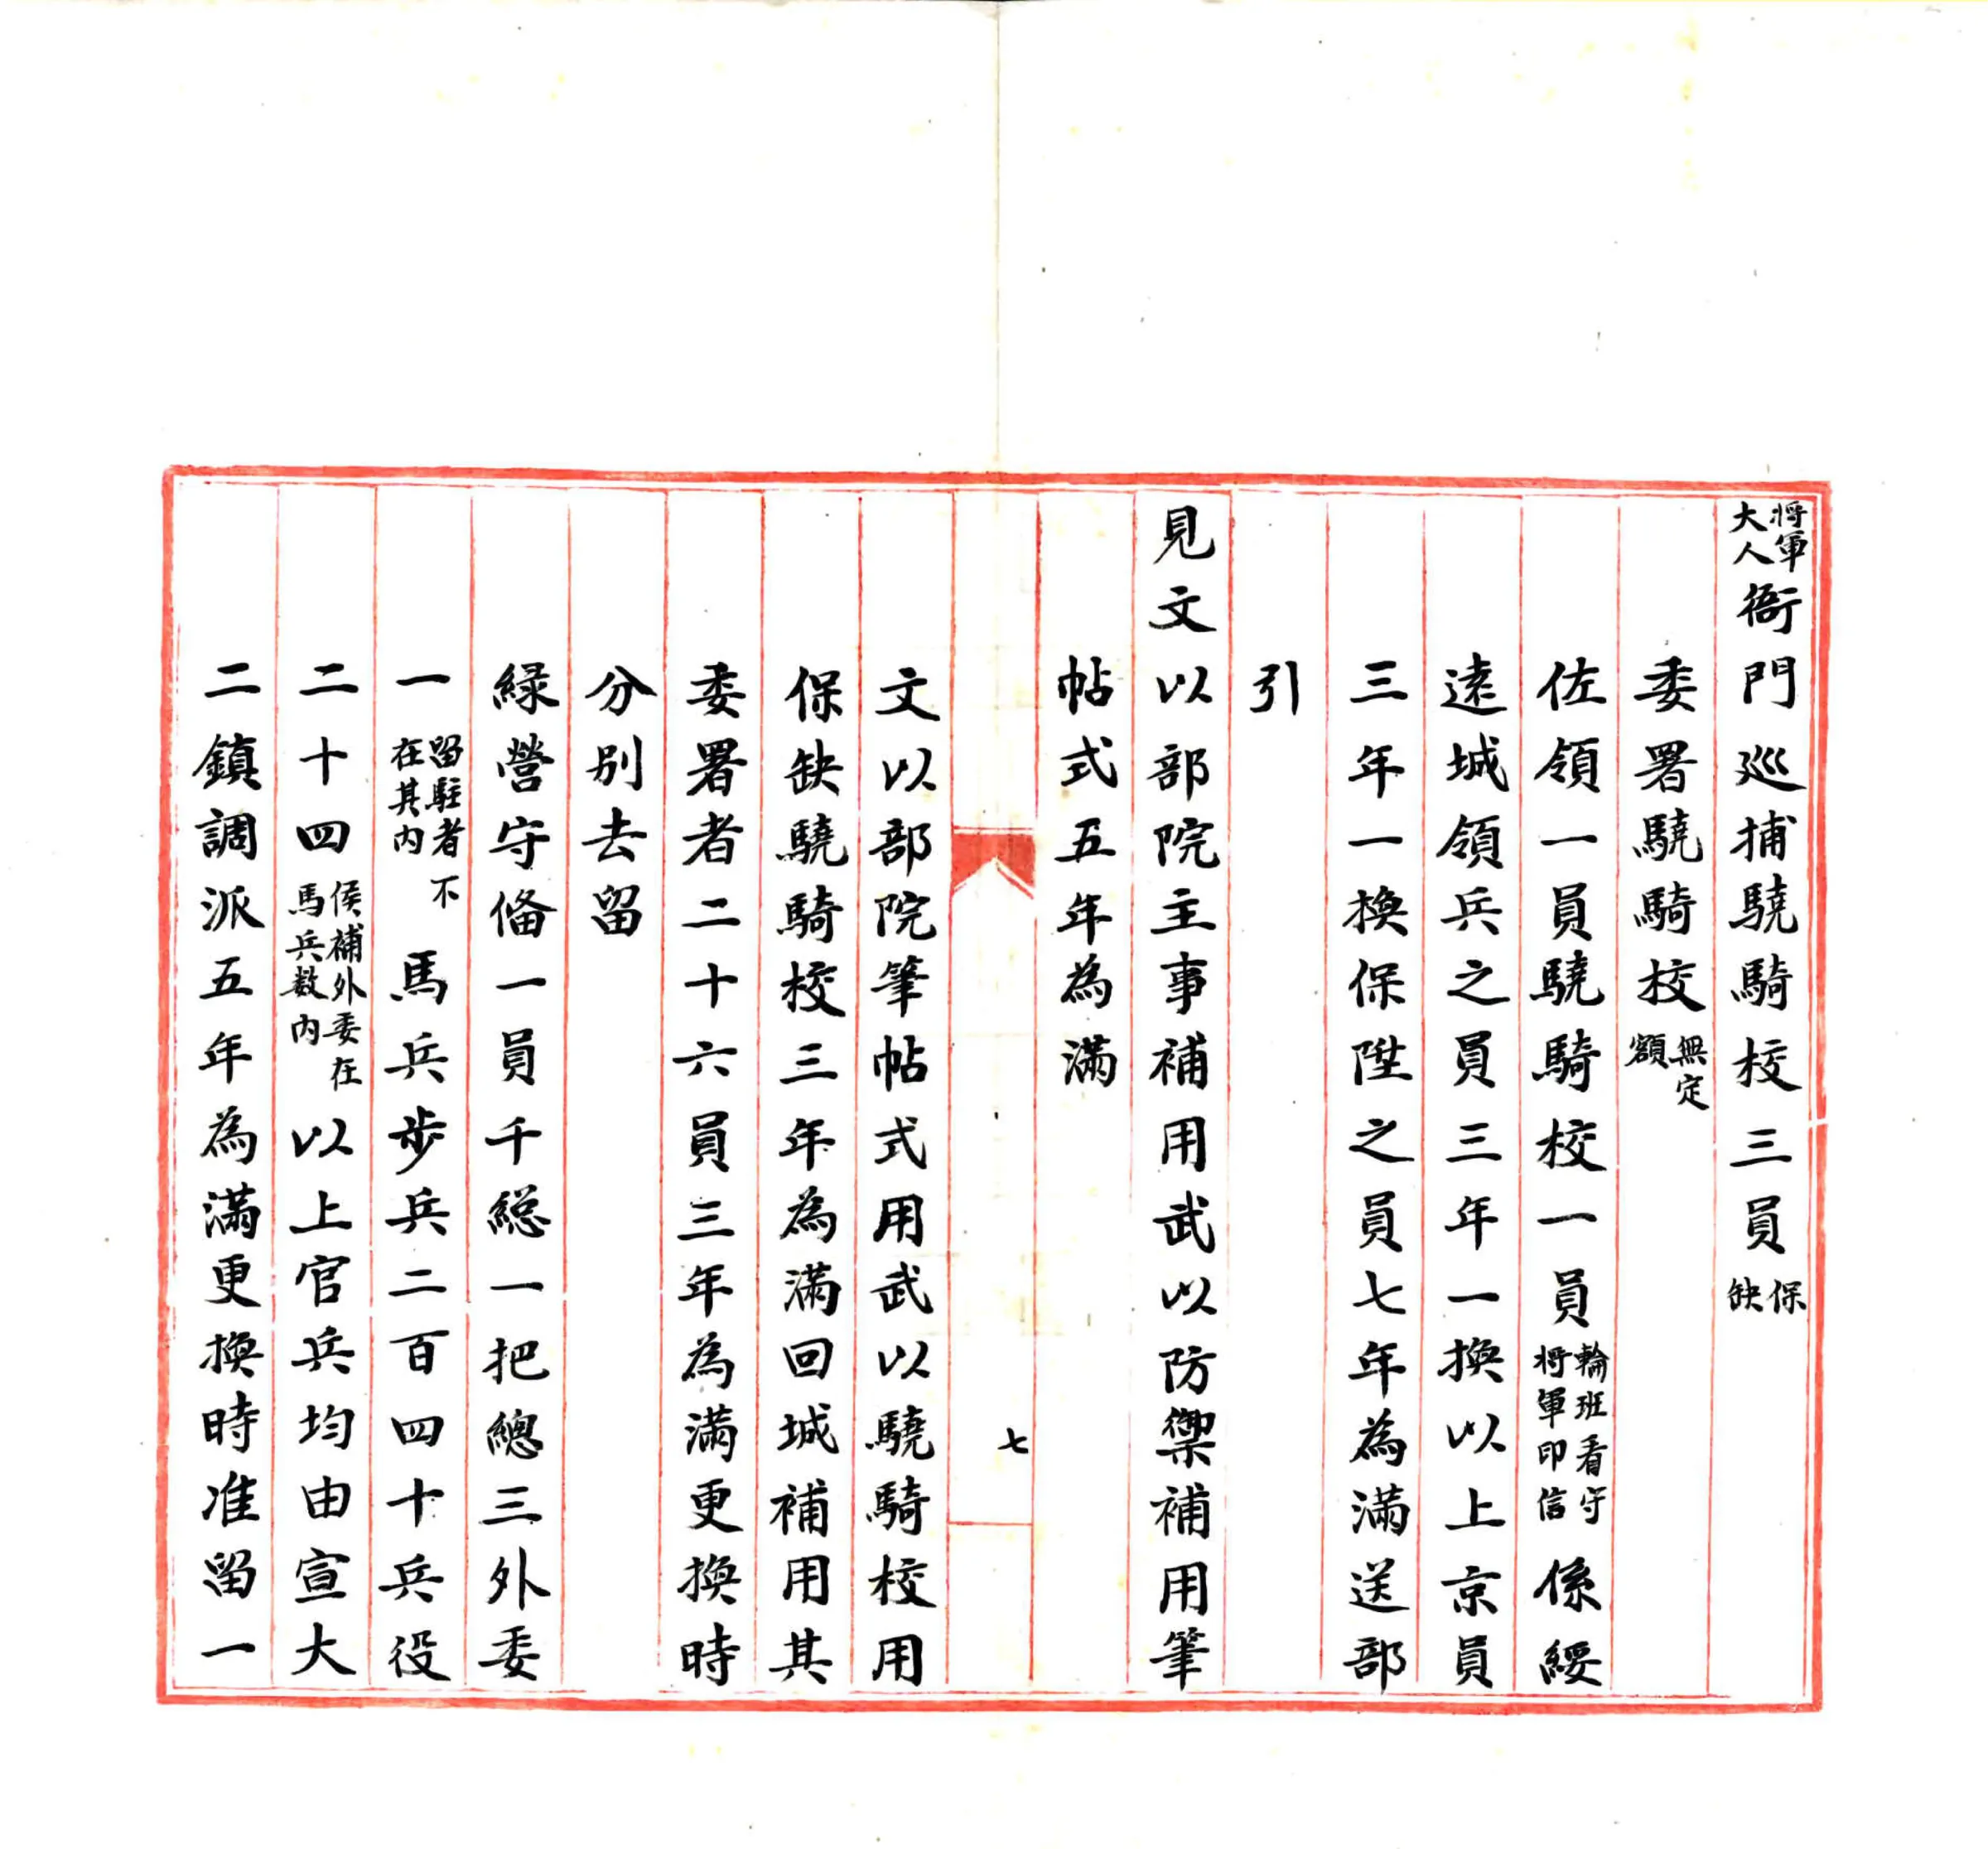 將軍大人衙門巡捕驍騎校三員保缺
委署驍騎校無定額
佐領一員驍騎校一員輪班看守將軍印信係綏
遠城領兵之員三年一換以上京員
三年一換保陞之員七年為滿送部
引
見文以部院主事補用武以防禦補用筆
帖式五年為滿
七
文以部院筆帖式用武以驍騎校用
保缺驍騎校三年為滿回城補用其
委署者二十六員三年為滿更換時
分別去留
綠營守備一員千総一把總三外委
一留駐者不在其內馬兵步兵二百四十兵役
二十四侯補外委在馬兵数內以上官兵均由宣大
二鎮調派五年為滿更換時准留一